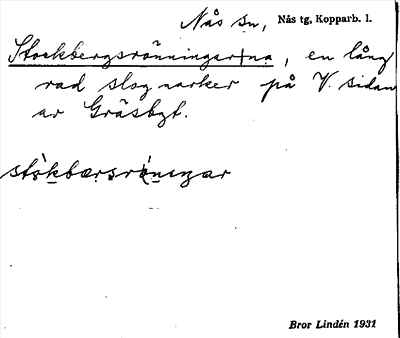 Nås sn, Nås tg, Kopparb. l.
Stockbergsrönningar+na, en lång
rad slogmarker på V. sidan
av Gräsbgt.
stòkbærsrö̀niŋar
Bror Lindén 1931